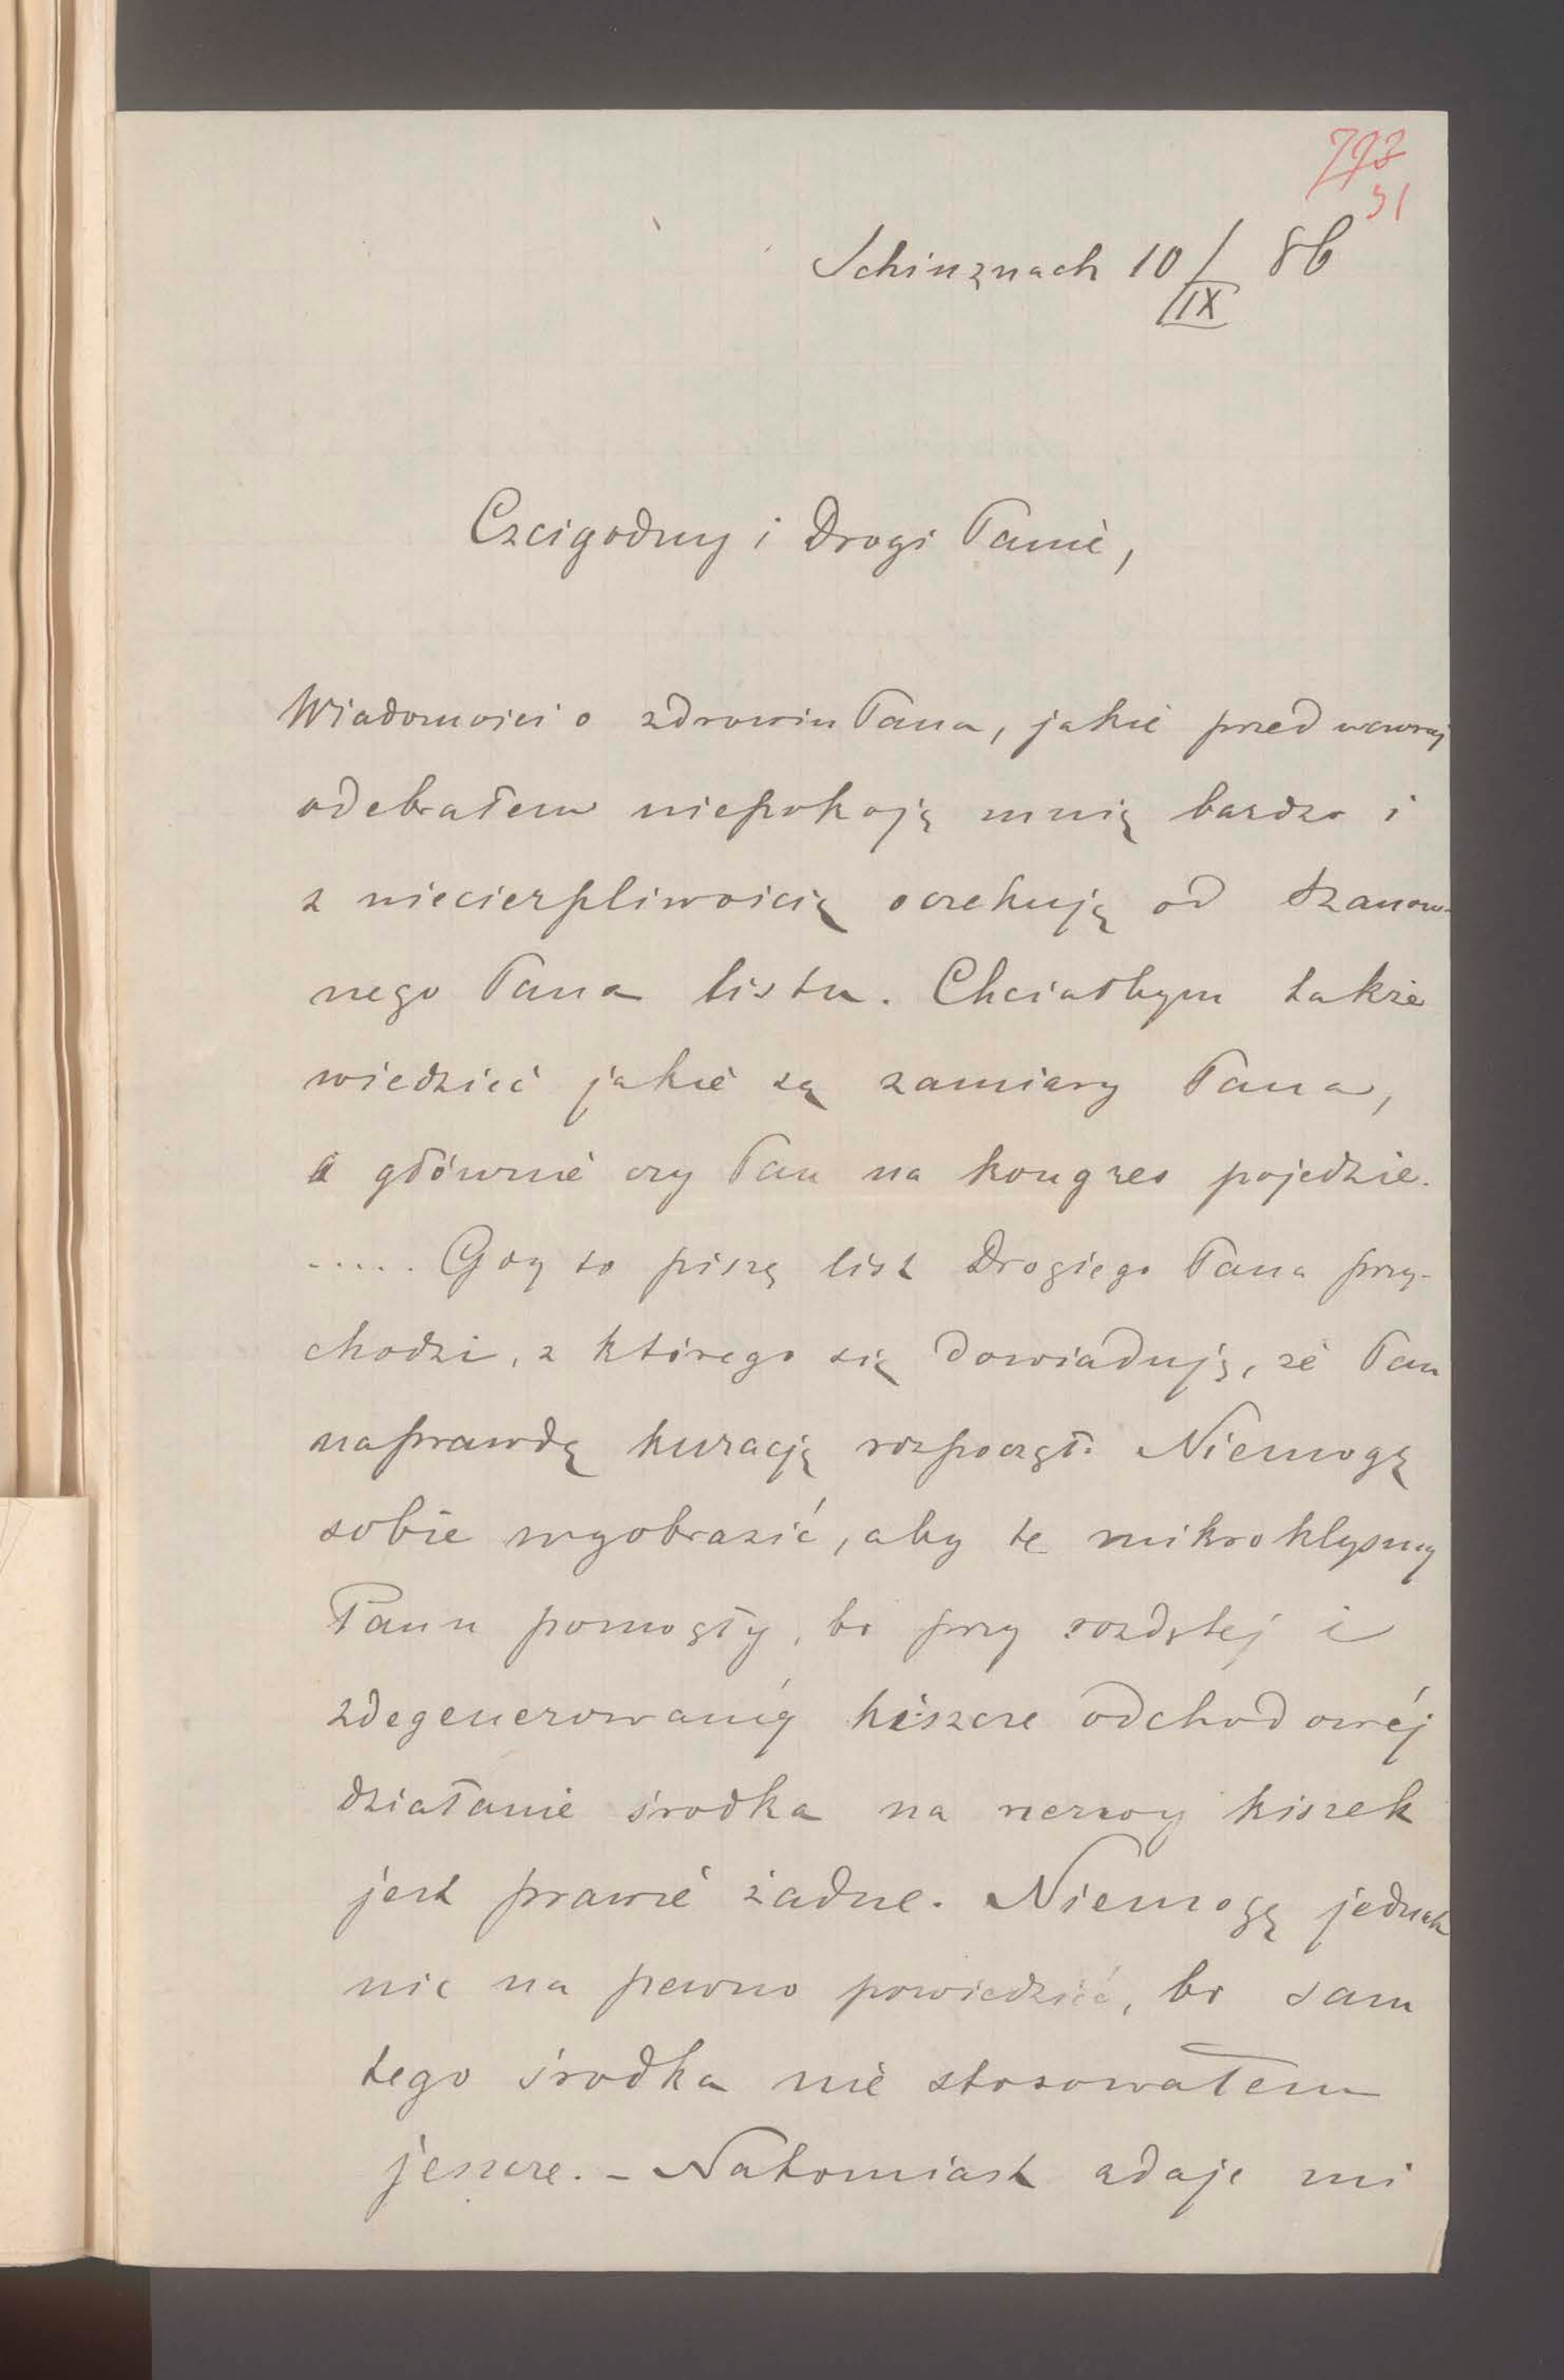 793
91
Schinznach 10/IX 86
Czcigodny i Drogi Panie,
Wiadomości o zdrowiu Pana, jakie przedwczoraj
odebrałem niepokoją mnię bardzo i
z niecierpliwością oczekuję od Szanow-
nego Pana listu. Chciałbym także
wiedzieć jakie są zamiary Pana,
a głównie czy Pan na kongres pojedzie.
..... Gdy to piszę list Drogiego Pana przy-
chodzi, z którego się dowiaduję, że Pan
naprawdę kurację rozpoczął. Niemogę
sobie wyobrazić, aby te mikroklysmy
Panu pomogły, bo przy rozdętej i
zdegenerowanéj kiszce odchodowéj
działanie środka na nerwy kiszek
jest prawie żadne. Niemogę jednak
nic na pewno powiedzieć, bo sam
tego środka nie stosowałem
jeszcze. – Natomiast zdaje mi